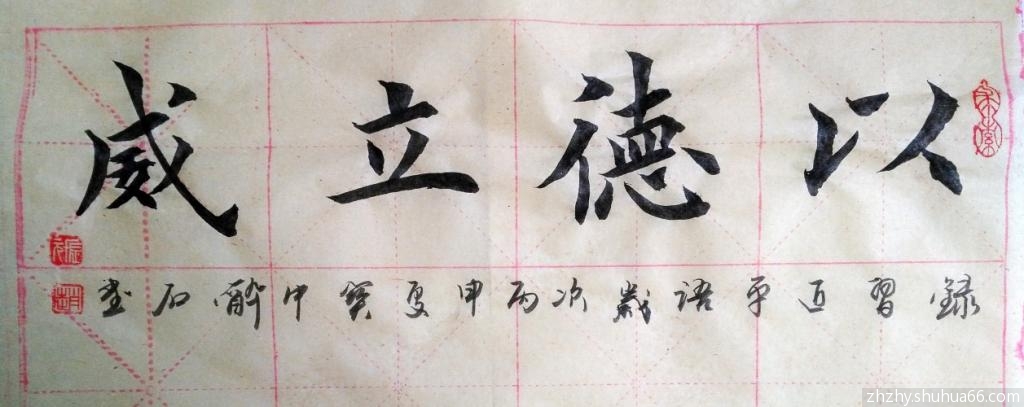 以德立威
錄習近平語歲次丙申夏寶中醉石書
zhzhy.shuhua66.com